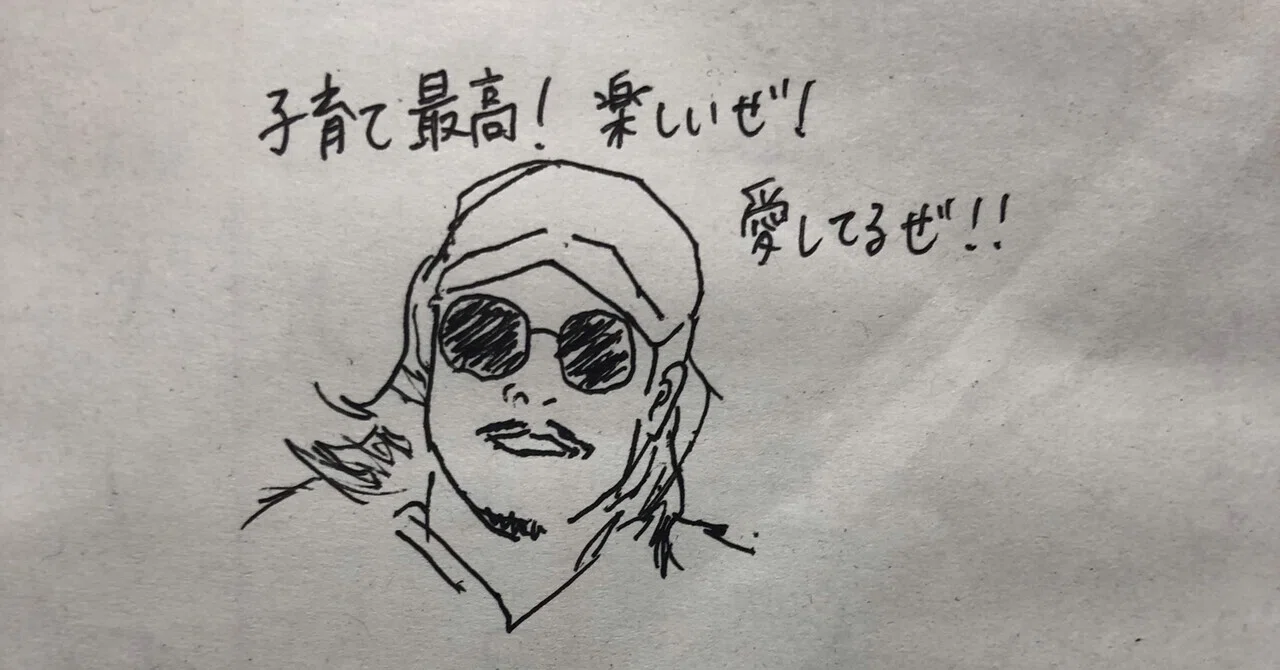 子育て最高！ 楽しいぜ！
愛してるぜ！！